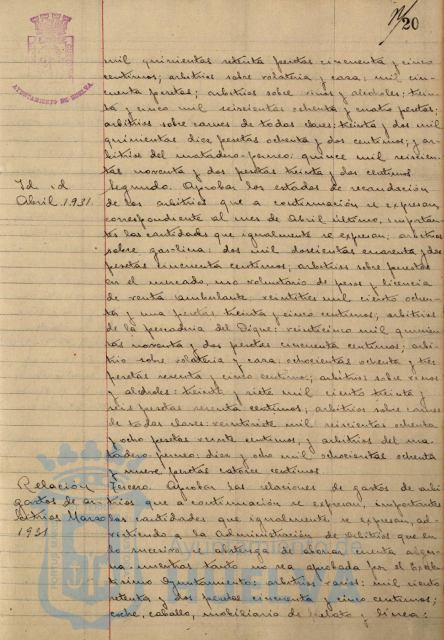 20
AYUNTAMIENTO DE HUELVA
mil quinientas setenta pesetas cincuenta y cinco
centimos; arbitrios sobre volateria y caza: mil cin-
cuenta pesetas; arbitrios sobre vinos y alcoholes: trein-
ta y cinco mil seiscientas ochenta y cuatro pesetas;
arbitrios sobre carnes de todas clases: treinta y dos mil
quinientas diez pesetas ochenta y dos centimos; y ar-
bitrios del matadero: quince mil seiscien-
tas noventa y dos pesetas treinta y dos centimos
Id id
Abril 1931.
Segundo. Aprobar los estados de recaudación
de los arbitrios que a continuación se expresan,
correspondiente al mes de Abril último, importan-
tes las cantidades que igualmente se expresan: arbitrios
sobre gasolina: dos mil doscientas cuarenta y dos
pesetas cincuenta centimos; arbitrios sobre puestos
en el mercado, uso voluntario de pesas y licencia
de venta ambulante: veintitres mil ciento ochen-
ta y una pesetas treinta y cinco centimos; arbitrios
de la pescaderia del Dique: veinticinco mil quinien-
tas noventa y dos pesetas cincuenta centimos; arbi-
trio sobre volateria y caza: ochocientas ochenta y tres
pesetas sesenta y cinco centimos; arbitrios sobre vinos
y alcoholes: treinta y siete mil ciento treinta y
seis pesetas sesenta centimos; arbitrios sobre carnes
de todas clases: veintisiete mil seiscientas ochenta
y ocho pesetas veinte centimos, y arbitrios del ma-
tadero: diez y ocho mil ochocientas ochenta
y nueve pesetas catorce centimos
Relación
gastos de ar-
bitrios Marzo
1931
Tercero. Aprobar las relaciones de gastos de arbi
trios que a continuación se expresan, importantes
las cantidades que igualmente se expresan, ad-
virtiendo a la Administración de Arbitrios que en
lo sucesivo se abstenga de abonar cuenta algu-
na mientras tanto no sea aprobada por el Exce-
lentisimo Ayuntamiento: arbitrios varios: mil ciento
setenta y dos pesetas cincuenta y cinco centimos;
coche, caballo, mobiliario de y linea: